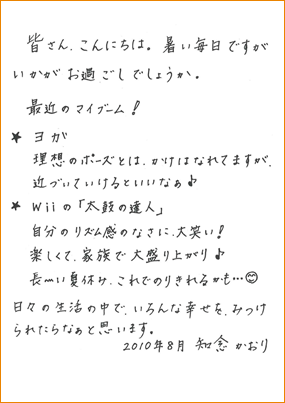 皆さん、こんにちは。暑い毎日ですが
いかがお過ごしでしょうか。
最近のマイブーム!
★ ヨガ
理想のポーズとは、かけはなれてますが、
近づいていけるといいなぁ♪
★ Wiiの「太鼓の達人」
自分のリズム感のなさに、大笑い!
楽しくて、家族で大盛り上がり♪
長〜い夏休み、これでのりきれるかも…😊
日々の生活の中で、いろんな幸せを、みつけ
られたらなぁと思います。
2010年8月 知念 かおり